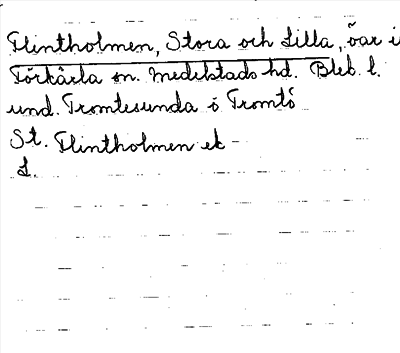 Flintholmen, Stora och Lilla, öar i
Förkärla sn. Medelstads hd. Blek. l.
und. Tromtesunda o Tromtö
St. Flintholmen ek
L.